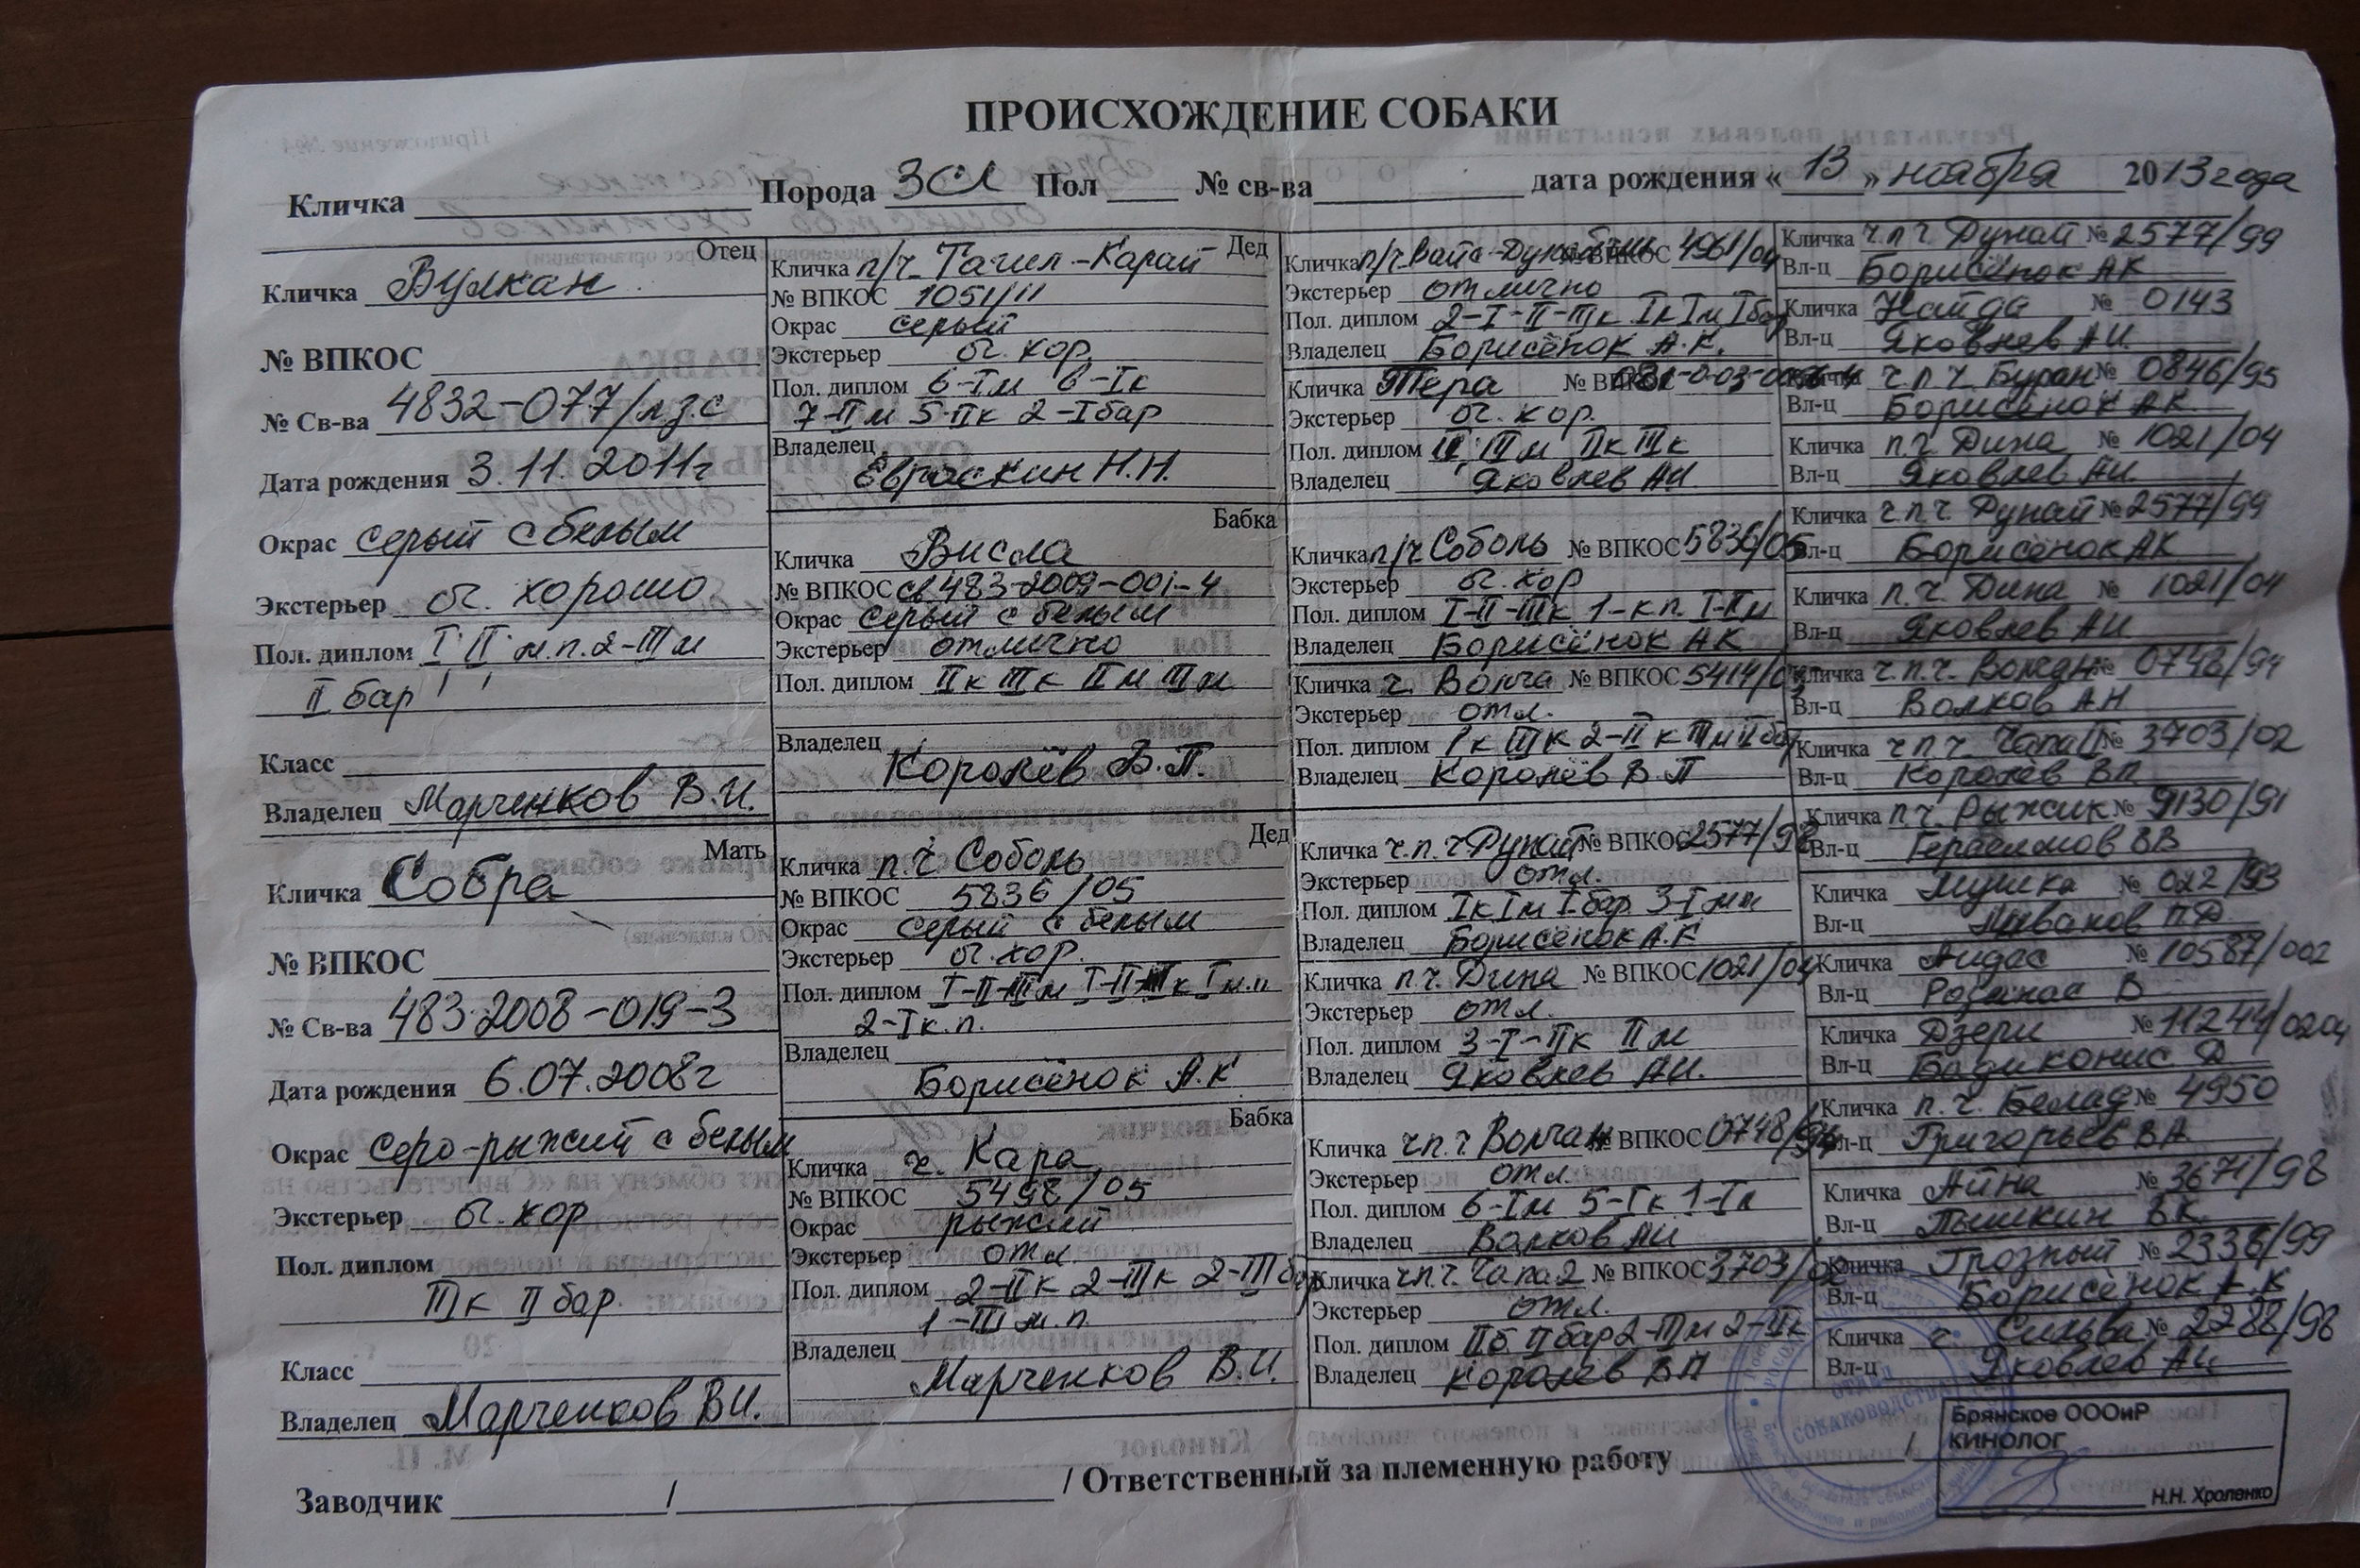 ПРОИСХОЖДЕНИЕ СОБАКИ
Кличка Порода ЗСЛ Пол № св-ва дата рождения «13» ноября 2013 года
Отец
Кличка Вулкан
№ ВПКОС
№ Св-ва 4832-077/лзс
Дата рождения 3.11.2011г
Окрас серый с белым
Экстерьер оч. хорошо
Пол. диплом I II м.п. 2-III м
II бар
Класс
Владелец Марченков В.И.
Мать
Кличка Собра
№ ВПКОС
№ Св-ва 483-2008-019-3
Дата рождения 6.07.2008г
Окрас серо-рыжий с белым
Экстерьер оч. хор
Пол. диплом
IIIк II бар.
Класс
Владелец Марченков В.И.
Дед
Кличка п/ч Тагил-Карай
№ ВПКОС 1051/11
Окрас серый
Экстерьер оч. хор.
Пол. диплом 6-Iм 6-Iк
7-IIм 5-IIк 2-Iбар
Владелец
Евраскин Н.Н.
Бабка
Кличка Висла
№ ВПКОС св 483-2009-001-4
Окрас серый с белым
Экстерьер отлично
Пол. диплом IIк IIIк IIм IIIм
Владелец
Королёв В.П.
Дед
Кличка п.ч. Соболь
№ ВПКОС 5836/05
Окрас серый с белым
Экстерьер оч. хор.
Пол. диплом I-II-IIIм I-II-IIIк Iм.п
2-Iк.п.
Владелец
Борисёнок А.К
Бабка
Кличка ч. Кара
№ ВПКОС 5498/05
Окрас рыжий
Экстерьер отл.
Пол. диплом 2-IIк 2-IIIк 2-III бар
1-III м.п.
Владелец
Марченков В.И.
Кличка п/ч Вайс-Дунай № ВПКОС 4961/04
Экстерьер отлично
Пол. диплом 2-I-II-IIIк Iк Iм Iбар
Владелец Борисёнок А.К.
Кличка Тера № ВПКОС
Экстерьер оч. хор.
Пол. диплом IIIм IIк IIIк
Владелец Яковлев АИ.
Кличка п/ч Соболь № ВПКОС 5836/05
Экстерьер оч. хор
Пол. диплом I-II-IIIк 1-к.п. I-IIм
Владелец Борисёнок АК
Кличка ч. Волча № ВПКОС 5414/03
Экстерьер отл.
Пол. диплом Iк IIIк 2-IIк IIIм II бар
Владелец Королёв В.П
Кличка ч.п.ч Дунай № ВПКОС 2577/98
Экстерьер отл.
Пол. диплом Iк Iм Iбар 3-Iмп
Владелец Борисёнок А.К
Кличка п.ч. Дина № ВПКОС 1021/04
Экстерьер отл.
Пол. диплом 3-I-IIк IIм
Владелец Яковлев АИ.
Кличка ч.п.ч Волчан № ВПКОС 0748/94
Экстерьер отл.
Пол. диплом 6-Iм 5-Iк 1-Iп
Владелец Волков АН
Кличка ч.п.ч. Чапа 2 № ВПКОС 3703/02
Экстерьер отл.
Пол. диплом IIб II бар 2-IIIм 2-IIк
Владелец Королёв ВП
Кличка ч.п.ч. Дунай № 2577/99
Вл-ц Борисёнок АК
Кличка Найда № 0143
Вл-ц Яковлев АИ.
Кличка ч.п.ч. Буран № 0846/95
Вл-ц Борисёнок АК.
Кличка п.ч. Дина № 1021/04
Вл-ц Яковлев АИ.
Кличка ч.п.ч. Дунай № 2577/99
Вл-ц Борисёнок АК
Кличка п.ч. Дина № 1021/04
Вл-ц Яковлев АИ
Кличка ч.п.ч. Волчан № 0748/94
Вл-ц Волков АН
Кличка ч.п.ч. Чапа II № 3703/02
Вл-ц Королёв ВП
Кличка п.ч. Рыжик № 9130/91
Вл-ц Герасимов ВВ
Кличка Мушка № 022/93
Вл-ц П.Д.
Кличка Аидас № 10587/002
Вл-ц Розанас В
Кличка Дзери № 11244/0204
Вл-ц Бадиконис Д
Кличка п.ч. Белад № 4950
Вл-ц Григорьев ВА
Кличка Айна № 3671/98
Вл-ц Пышкин ВК.
Кличка Грозный № 2338/99
Вл-ц Борисёнок А.К
Кличка ч. Сильва № 2288/98
Вл-ц Яковлев АИ.
Заводчик / / Ответственный за племенную работу /
ОТДЕЛ
СОБАКОВОДСТВА
Брянское ОООиР
КИНОЛОГ
Н.Н. Хроленко